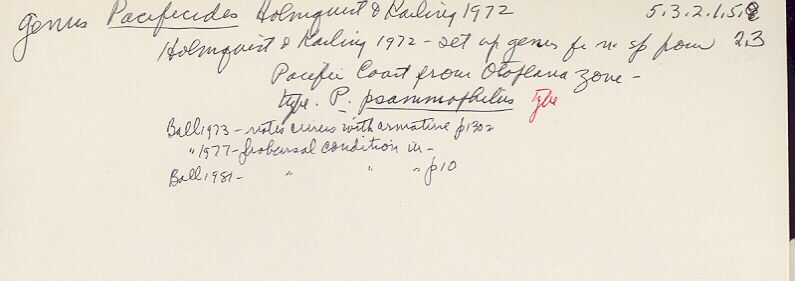 genus Pacificides Holmquist & Karling 1972 5.3.2.1.5.8
Holmquist & Karling 1972 - set up genus for n. sp from 23
Pacific Coast from Otoplana zone -
type. P. psammophilus type
Ball 1973 - notes cirrus with armature p1302
" 1977 - probursal condition in -
Ball 1981 - " " " p10